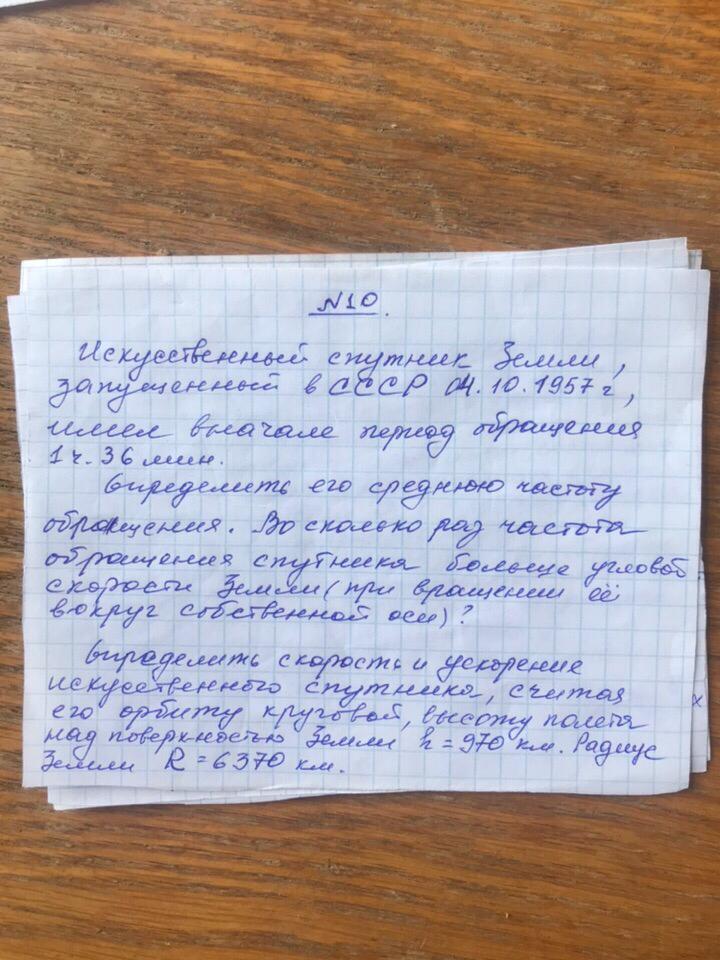 N10.
Искусственный спутник Земли,
запущенный в СССР 04.10.1957 г,
имел вначале период обращения
1 ч. 36 мин.
Определить его среднюю частоту
обращения. Во сколько раз частота
обращения спутника больше угловой
скорости Земли (при вращении её
вокруг собственной оси)?
Определить скорость и ускорение
искусственного спутника, считая
его орбиту круговой, высоту полета
над поверхностью Земли h = 970 км. Радиус
Земли R = 6370 км.
х